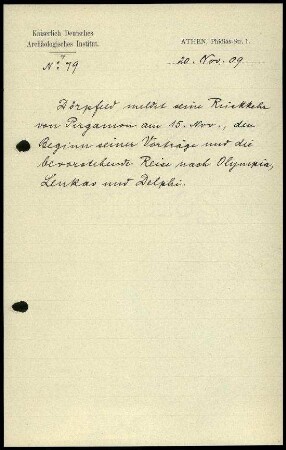 Kaiserlich Deutsches
Archäologisches Institut.
ATHEN, Phidias-Str. 1.
No 79
20. Nov. 09.
Dörpfeld meldet seine Rückkehr
von Pergamon am 15. Nov., den
Beginn seiner Vorträge und die
bevorstehende Reise nach Olympia,
Leukas und Delphi.